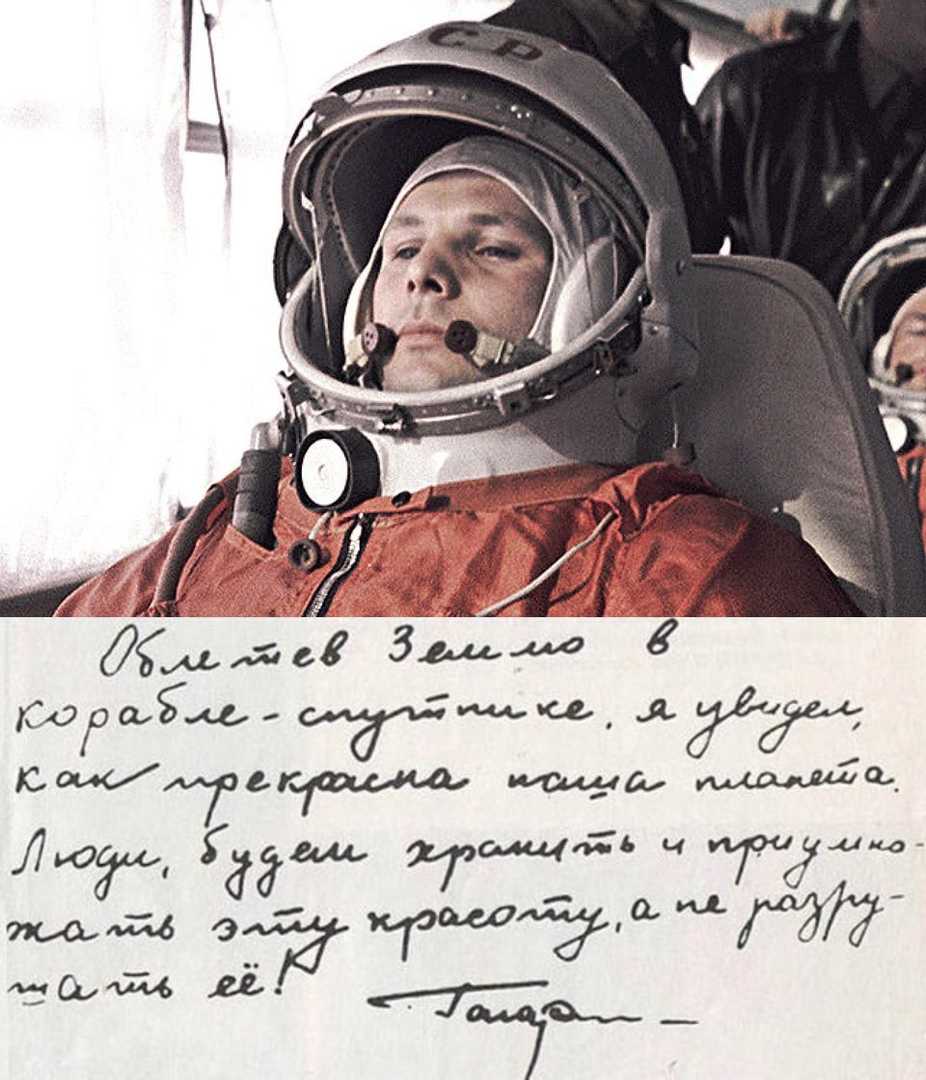 СР
Облетев Землю в
корабле-спутнике, я увидел,
как прекрасна наша планета.
Люди, будем хранить и приумно-
жать эту красоту, а не разру-
шать её!
Гагарин